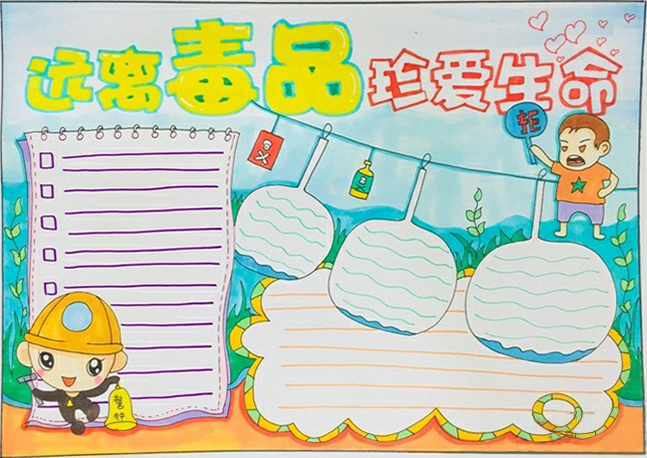 远离毒品 珍爱生命
拒
警钟